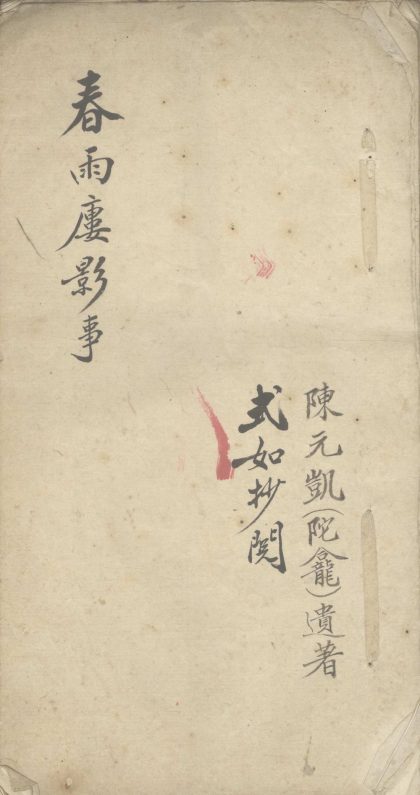 陳元凱(陀龕)遺著
式如抄閱
春雨廔影事